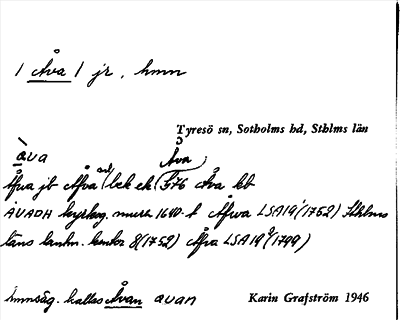 / Åva / jr, hmn
Tyresö sn, Sotholms hd, Sthlms län
àva Åva
Åfva jb Åfva bck ek 576 Åva kb
ÅVADH kyrkog. mura 1640-t Åfwa LSA19¹(1752) Sthlms
läns lantm. kontor 8(1752) Åfva LSA19²(1799)
hmnsäg. kallas Åvan avan
Karin Grafström 1946